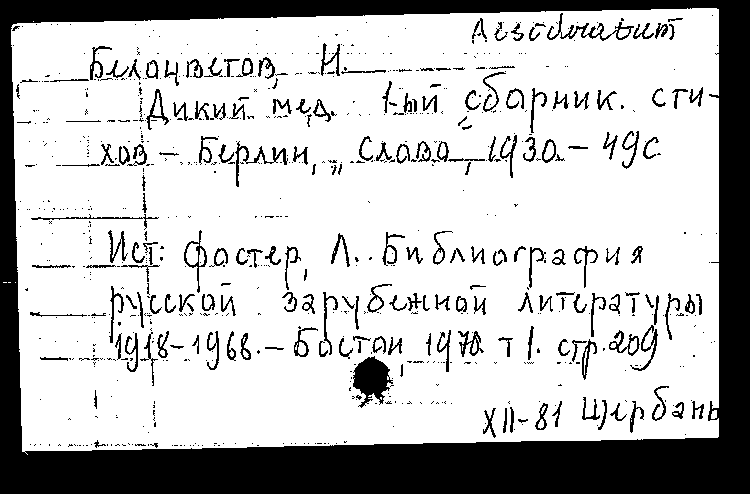 Desideratum
Белоцветов, Н.
Дикий мед. 1-ый сборник. сти-
хов – Берлин, „Слово“, 1930. – 49с
Ист: Фостер, Л. Библиография
русской зарубежной литературы
1918-1968. – Бостон, 1970. т 1. стр. 209
XII-81 Щербань